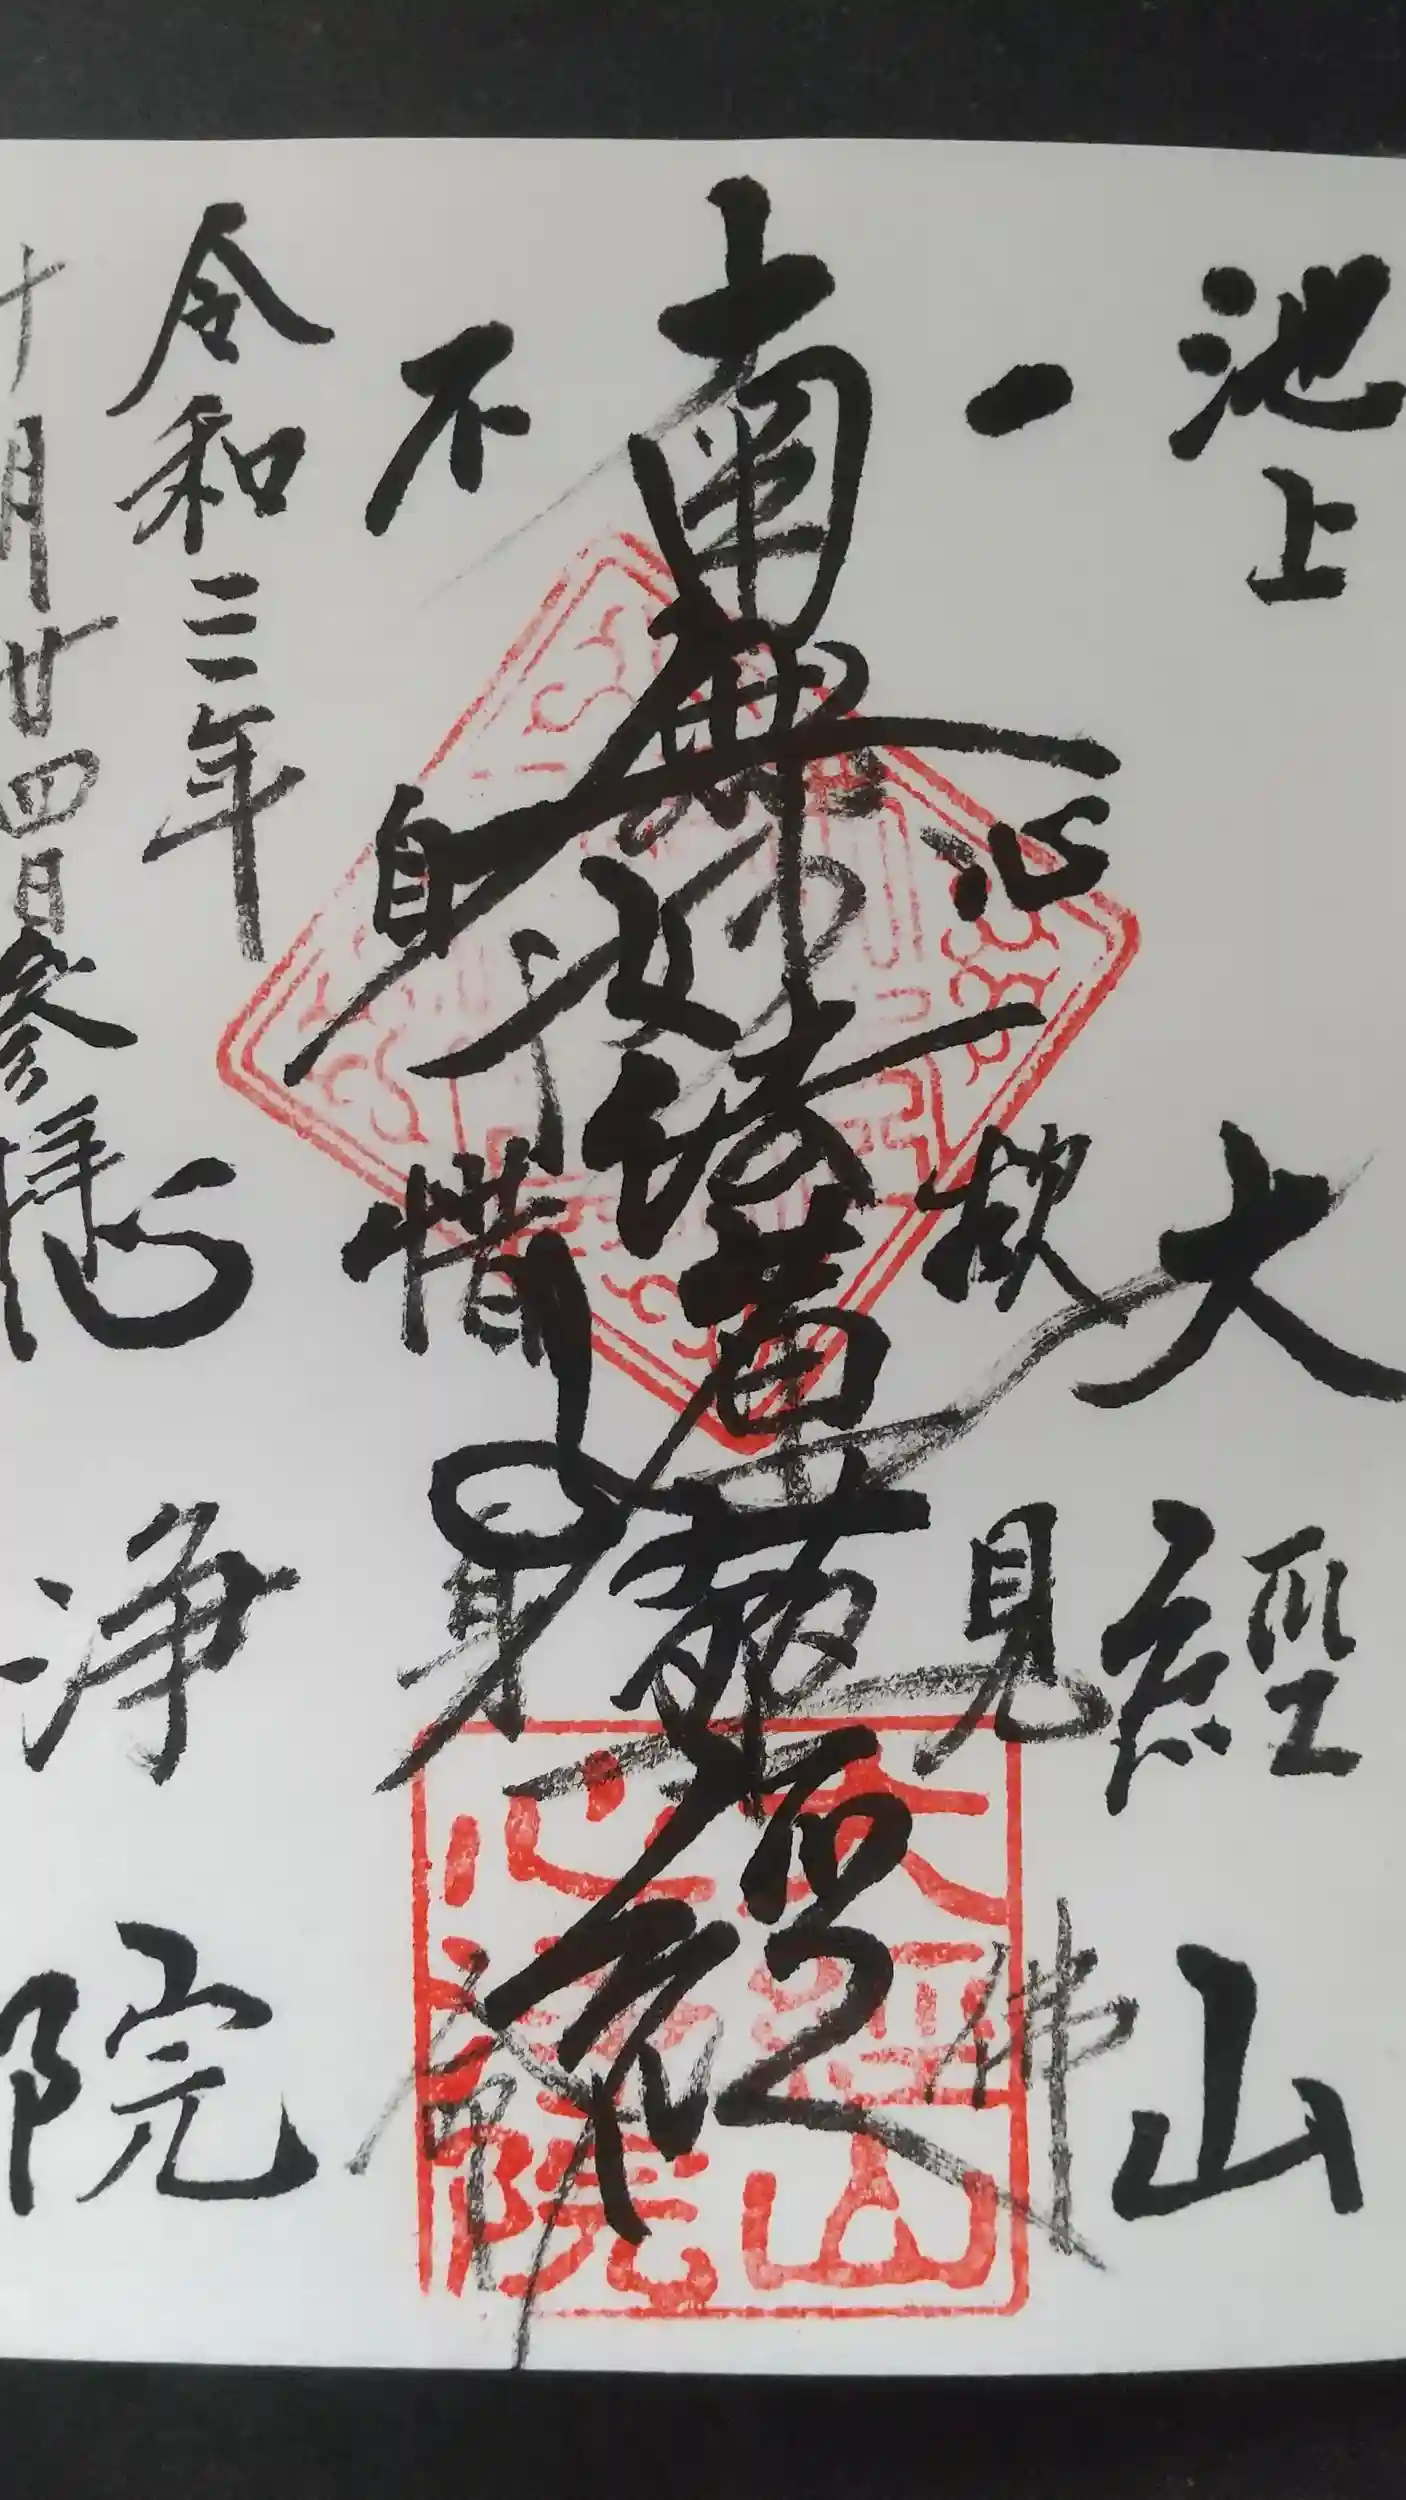 池上 大經山
一心欲見佛
南無妙法蓮華經
不自惜身命
令和三年
十月廿四日参拝
心浄院
大經山
心浄院